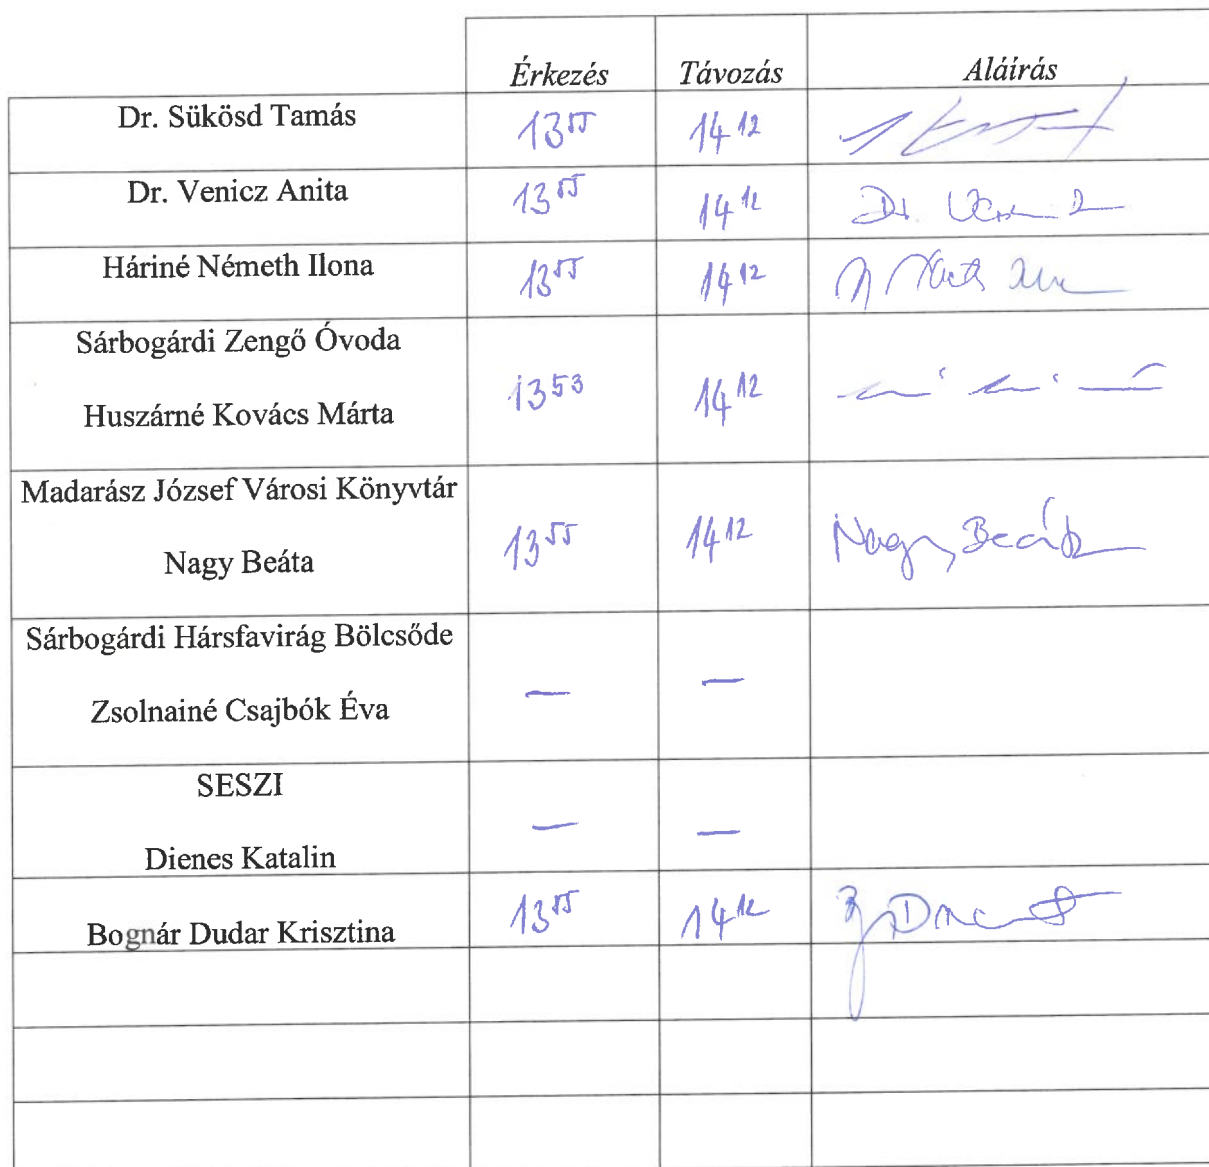 Érkezés Távozás Aláírás
Dr. Sükösd Tamás 13 55 14 12
Dr. Venicz Anita 13 55 14 12 Dr.
Háriné Németh Ilona 13 55 14 12
Sárbogárdi Zengő Óvoda
Huszárné Kovács Márta 13 53 14 12
Madarász József Városi Könyvtár
Nagy Beáta 13 55 14 12 Nagy Beáta
Sárbogárdi Hársfavirág Bölcsőde
Zsolnainé Csajbók Éva — —
SESZI
Dienes Katalin — —
Bognár Dudar Krisztina 13 55 14 12